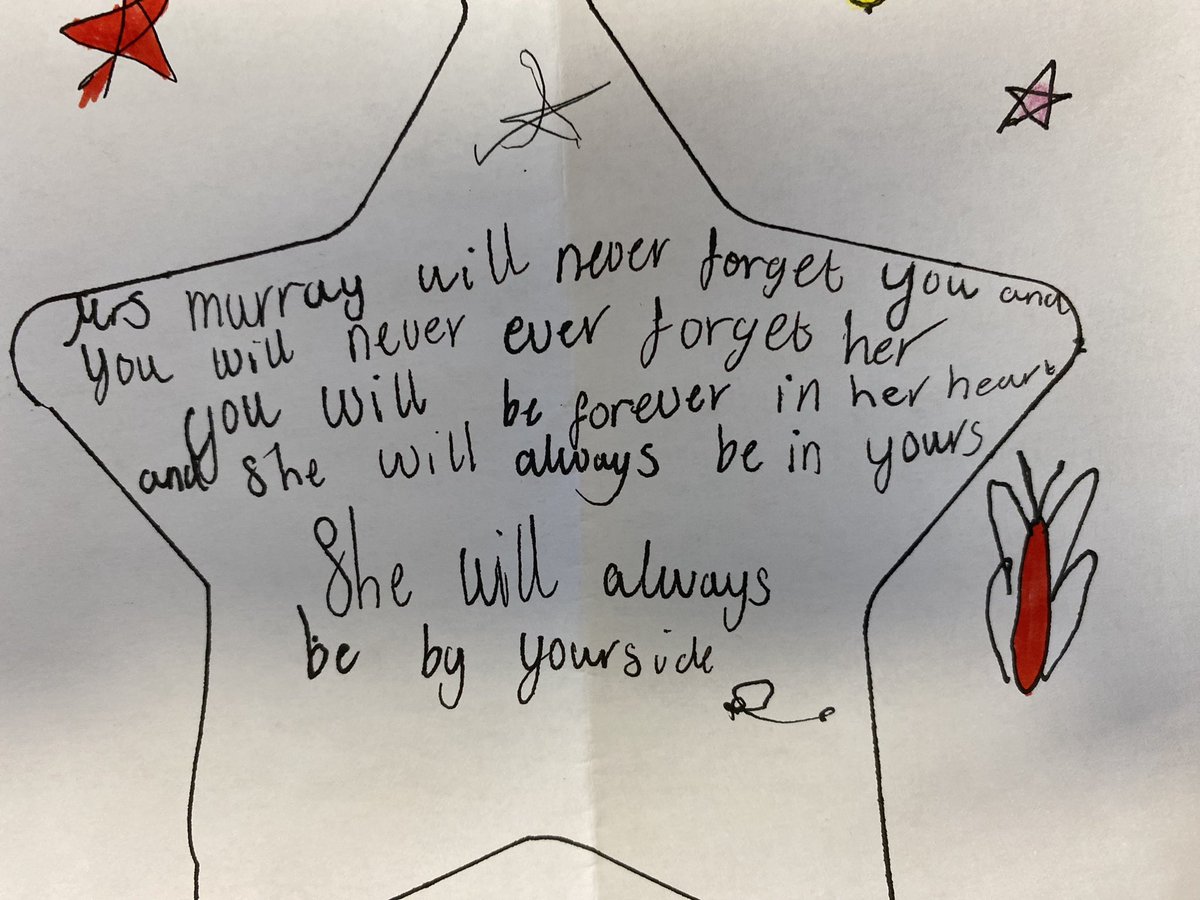 Mrs murray will never forget you and
you will never ever forget her
you will be forever in her heart
and she will always be in yours
She will always
be by yourside